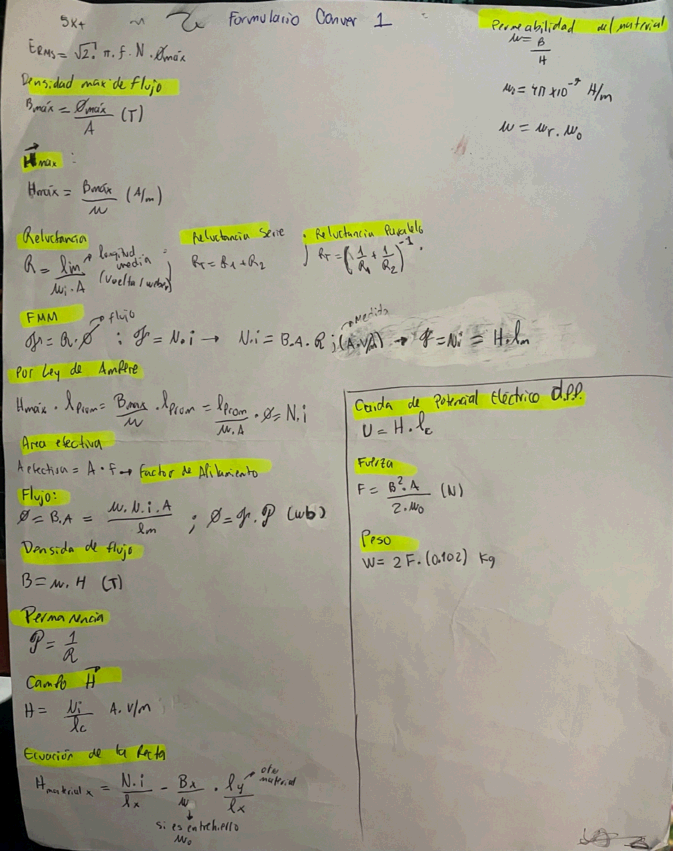 5x+
Formulario Conver 1
E_RMS = √2 . π . f . N . Ømáx
Densidad max de flujo
Bmáx = Ømáx / A (T)
H⃗ máx :
Hmáx = Bmáx / μ (A/m)
Reluctancia
R = lm / μi . A
longitud media
(vuelta/weber)
Reluctancia Serie
R_T = R1 + R2
; Reluctancia Paralelo
R_T = (1/R1 + 1/R2)^-1
FMM
F = R . Ø ; F = N . i → N . i = B . A . R ; (A.V/m) → F = Ni = H . lm
flujo
Medida
Por Ley de Ampere
Hmáx . lprom = Bmax / μ . lprom = lprom / μ . A . Ø = N . i
Area efectiva
A efectiva = A . f → Factor de Apilamiento
Flujo:
Ø = B . A = μ . N . i . A / lm ; Ø = F . P (wb)
Densida de flujo
B = μ . H (T)
Permanencia
P = 1 / R
Campo H⃗
H = Ni / lc A.V/m
Ecuación de la Recta
H material x = N . i / lx - Bx / μ . ly / lx
otro material
si es entrehierro
μ0
Permeabilidad del material
μ = B / H
μ0 = 4π x10^-7 H/m
μ = μr . μ0
Caida de Potencial Eléctrico d.p.p.
U = H . lc
Fuerza
F = B² . A / 2 . μ0 (N)
Peso
W = 2F . (0.102) Kg